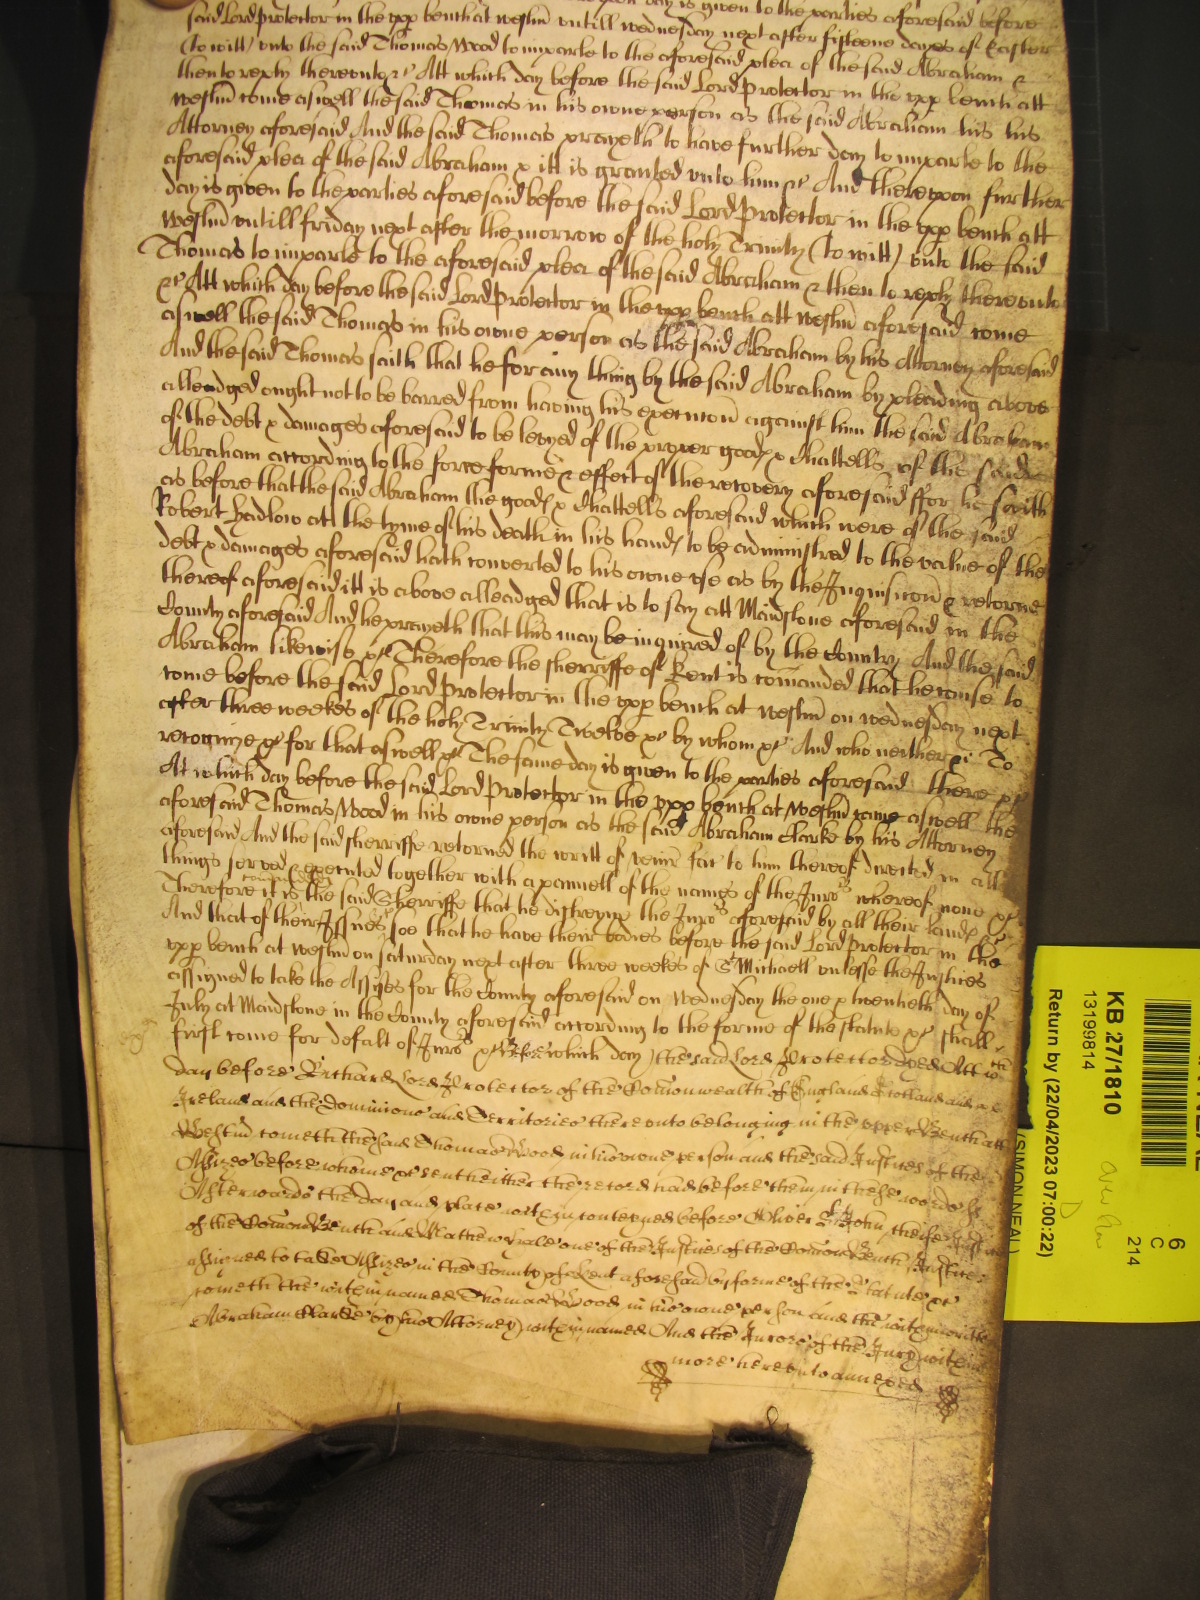 day is given to the parties aforesaid before
said Lord Protector in the upp bench at Westm untill wednesday next after fifteene dayes of Easter
(to witt) unto the said Thomas Wood to imparle to the aforesaid plea of the said Abraham &
then to reply thereunto &c Att which day before the said Lord Protector in the upp bench att
Westm come aswell the said Thomas in his owne person as the said Abraham his his
Attorney aforesaid And the said Thomas prayeth to have further day to imparle to the
aforesaid plea of the said Abraham & itt is granted unto him &c And thereupon further
day is given to the parties aforesaid before the said Lord Protector in the upp bench att
Westm untill friday next after the morrow of the holy Trinity (to witt) unto the said
Thomas to imparle to the aforesaid plea of the said Abraham & then to reply thereunto
&c Att which day before the said Lord Protector in the upp bench att Westm aforesaid come
aswell the said Thomas in his owne person as the said Abraham by his Attorney aforesaid
And the said Thomas saith that he for any thing by the said Abraham by pleading above
alleadged ought not to be barred from having his execucon against him the said Abraham
of the debt & damages aforesaid to be levyed of the proper goods & Chattells of the said
Abraham according to the force forme & effect of the recovery aforesaid ffor he saith
as before that the said Abraham the goods & Chattells aforesaid which were of the said
Robert Hadlow att the tyme of his death in his hands to be administred to the value of the
debt & damages aforesaid hath converted to his owne use as by the Inquisicon & retorne
thereof aforesaid itt is above alleadged that is to say att Maidstone aforesaid in the
County aforesaid And he prayeth that this may be inquired of by the Country And the said
Abraham likewise &c Therefore the sherriffe of Kent is comanded that he cause to
come before the said Lord Protector in the upp bench at Westm on wednesday next
after three weekes of the holy Trinity Twelve &c by whom &c And who neither &c To
recognize &c for that aswell &c The same day is given to the parties aforesaid there &c
At which day before the said Lord Protector in the upp bench at Westm came aswell the
aforesaid Thomas Wood in his owne person as the said Abraham Clarke by his Attorney
aforesaid And the said sherriffe retorned the writt of venir fac to him thereof directed in all
things served & executed together with a pannell of the names of the Juros whereof none &c
Therefore it is comanded the said Sherriffe that he distreyne the Juros aforesaid by all their lands &c
And that of their Issues &c soe that he have their bodies before the said Lord Protector in the
upp bench at Westm on Saturday next after three weekes of St Michaell unlesse the Justices
assigned to take the Assizes for the County aforesaid on Wednesday the one & twentieth day of
July at Maidstone in the County aforesaid according to the forme of the statute &c shall
first come for default of Juros &c Before which day the said Lord Protector dyed Att wch
day before Richard Lord Protector of the Comonwealth of England Scotland and
Ireland and the Dominions and Territories thereunto belonging in the upper Bench att
Westm cometh the said Thomas Wood in his owne person and the said Justices of the
Assizes before whome &c sent hither there record had before them in these words &c
Afterwards the day and place within conteyned before Oliver St John cheife Justice
of the Comon Bench and Mathew Hale one of the Justices of the Comon Bench Justices
assigned to take Assizes in the County of Kent aforesaid by forme of the Statute &c
cometh the within named Thomas Wood in his owne person and the within written
Abraham Clarke by his Attorney within named And the Jurors of the Jury within
more hereunto annexed
KB 27/1810
13199814
Return by (22/04/2023 07:00:22)
(SIMON NEAL)
6
C
214